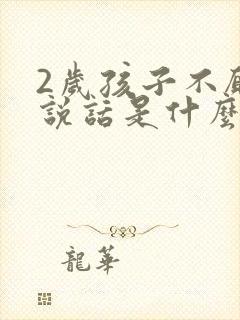 2歲孩子不
說話是什麼
龍華